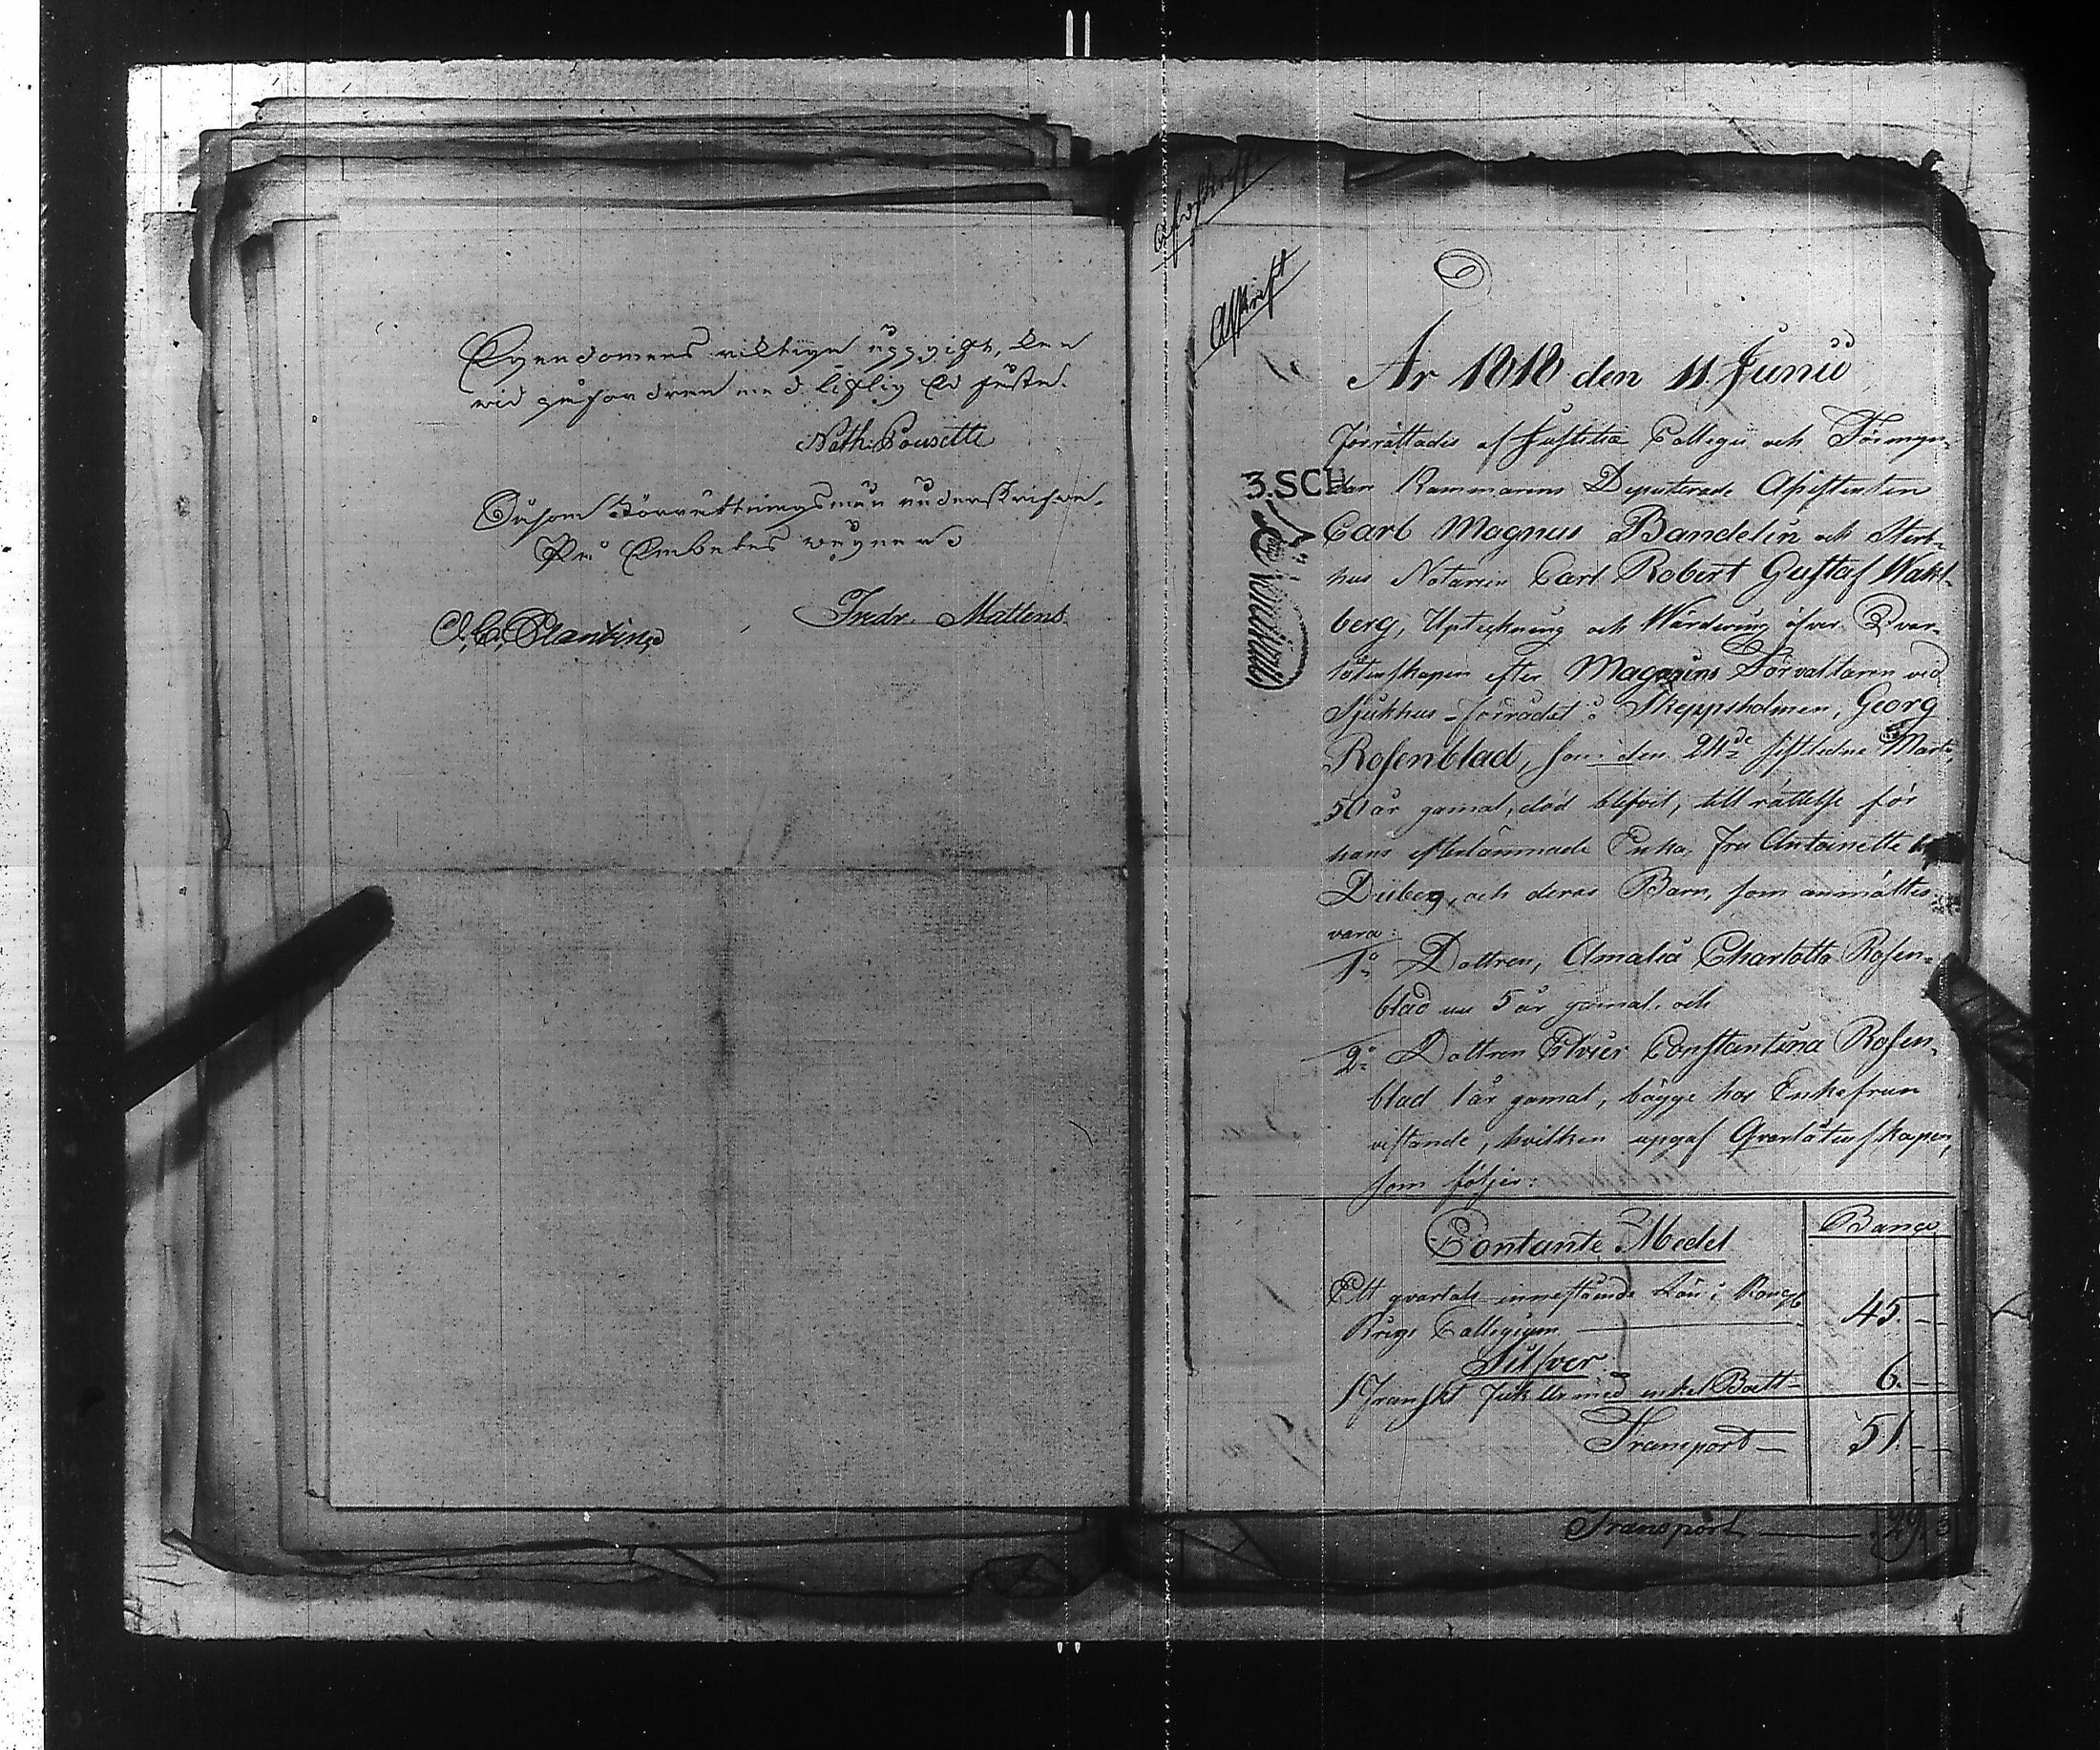 Egendomens riktiga uppgift, kan
vid påfordran med liflig Ed fästa.
Nath: Pousette
Såsom Förrättningsmän underskrifva.
På Embetes vägnar
Fredr. Mattens
Afskrift
Afskrift
År 1818 den 11 Junii
förrättades af Justitiæ Collegii och Förmyn-
dare Kammarens Deputerade Assistenten
Carl Magnus Bandelin och Sterb-
hus Notarien Carl Robert Gustaf Wahl-
berg, Upteckning och Wärdering öfver Qvar-
låtenskapen efter Magazins Förvaltaren vid
Sjukhus-förrådet å Skeppsholmen, Georg
Rosenblad, som den 24de sistledne Martii,
50 år gamal, död blifvit, till rättelse för
hans efterlämnade Enka, fru Antoinette
Duberg, och deras Barn, som anmältes
vara:
1o Dottren, Amalia Charlotta Rosen-
blad nu 5 år gamal, och
2o Dottren Elvier Constantina Rosen-
blad 1 år gamal, bägge hos Enkefrun
vistande, hvilken upgaf Qvarlåtenskapen,
som följer:
3.SCH
Contante Medel
Banco
Ett qvartals innestående Lön i Kongl.
Krigs Collegium 45. -
Silfver
1 Franskt fickUr med enkel Boett - 6. -
Transport - 51. -
Transport 29.